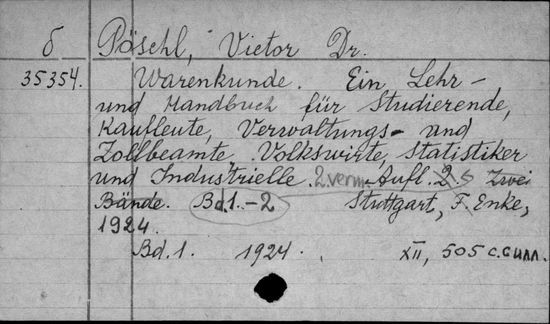 б Pöschl, Victor Dr.
35354. Warenkunde. Ein Lehr-
und Handbuch für Studierende,
Kaufleute, Verwaltungs- und
Zollbeamte, Volkswirte, Statistiker
und Industrielle. 2. verm. Aufl. Zwei
Bände. Bd. 1.-2 Stuttgart, F. Enke,
1924.
Bd. 1. 1924. XII, 505 с. с илл.